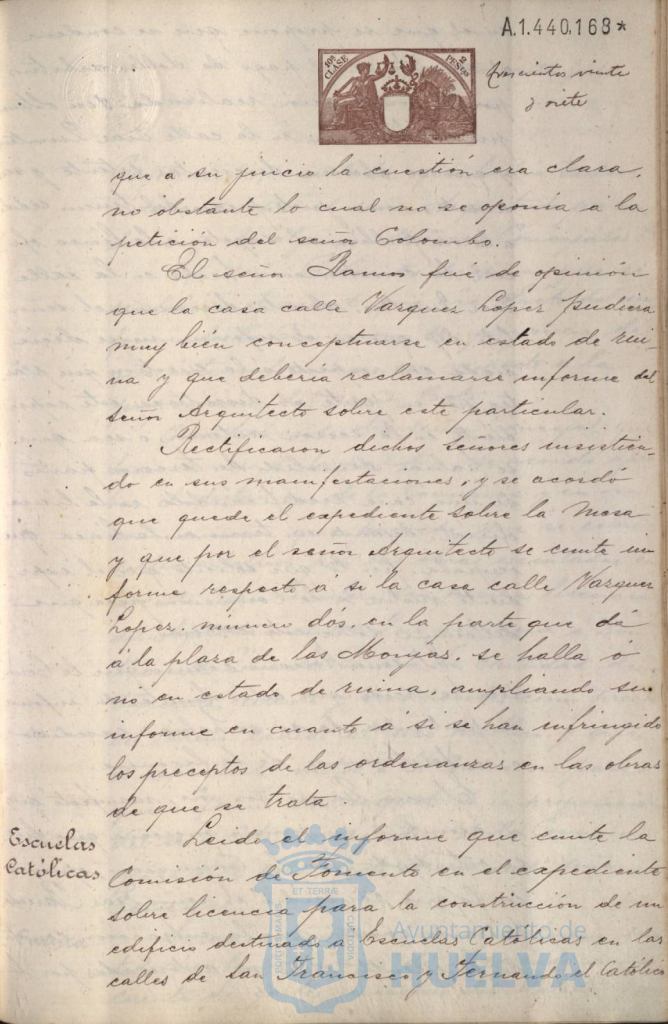 A.1.440,168*
10ª CLASE
2 PESETAS
trescientos veinte
y siete
que a su juicio la cuestión era clara,
no obstante lo cual no se oponía á la
petición del señor Colombo.
El señor Ramos fué de opinión
que la casa calle Vazquez Lopez pudiera
muy bién conceptuarse en estado de rui-
na y que debería reclamarse informe del
señor Arquitecto sobre este particular.
Rectificaron dichos señores insistien-
do en sus manifestaciones, y se acordó
que quede el expediente sobre la mesa
y que por el señor Arquitecto se emite in
forme respecto á si la casa calle Vazquez
Lopez. número dós, en la parte que dá
á la plaza de las Monjas, se halla ó
nó en estado de ruina, ampliando su
informe en cuanto á si se han infringido
los preceptos de las ordenanzas en las obras
de que se trata.
Escuelas
Católicas
Leido el informe que emite la
Comisión de Fomento en el expediente
sobre licencia para la construcción de un
edificio destinado a Escuelas Católicas en las
calles de San Francisco y Fernando el Católico
ET TERRÆ
CUSTODIA
PORTUS MARIS
Ayuntamiento de
HUELVA